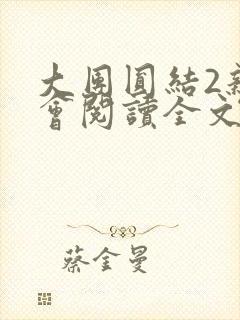 大團圓結2新
會閱讀全文
蔡金曼